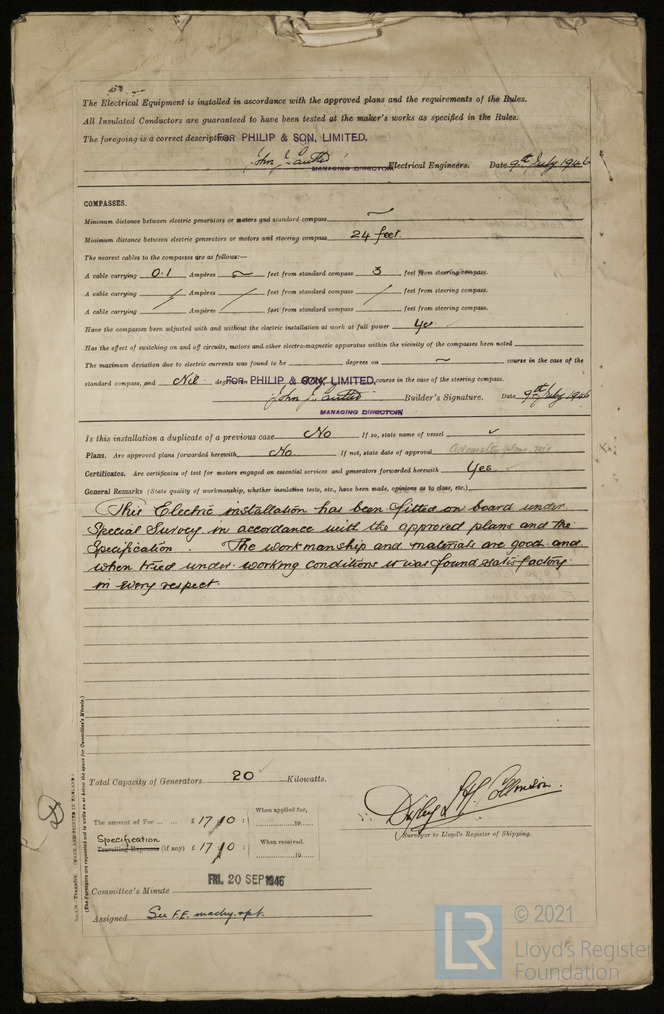 The Electrical Equipment is installed in accordance with the approved plans and the requirements of the Rules.
All Insulated Conductors are guaranteed to have been tested at the maker's works as specified in the Rules.
The foregoing is a correct description. FOR PHILIP & SON, LIMITED.
John J. MANAGING DIRECTOR Electrical Engineers. Date 9th July 1946
COMPASSES.
Minimum distance between electric generators or motors and standard compass
Minimum distance between electric generators or motors and steering compass 24 feet.
The nearest cables to the compasses are as follows:—
A cable carrying 0.1 Ampères feet from standard compass 3 feet from steering compass.
A cable carrying / Ampères / feet from standard compass / feet from steering compass.
A cable carrying Ampères feet from standard compass feet from steering compass.
Have the compasses been adjusted with and without the electric installation at work at full power Yes
Has the effect of switching on and off circuits, motors and other electro-magnetic apparatus within the vicinity of the compasses been noted
The maximum deviation due to electric currents was found to be degrees on course in the case of the
standard compass, and Nil degrees on any course in the case of the steering compass.
FOR PHILIP & SON, LIMITED.
John J. Builder's Signature. Date 9th July 1946
MANAGING DIRECTOR
Is this installation a duplicate of a previous case No If so, state name of vessel
Plans. Are approved plans forwarded herewith No. If not, state date of approval
Certificates. Are certificates of test for motors engaged on essential services and generators forwarded herewith Yes
General Remarks (State quality of workmanship, whether insulation tests, etc., have been made, opinions as to class, etc.)
This Electric installation has been fitted on board under
Special Survey in accordance with the approved plans and the
Specification. The workmanship and materials are good and
when tried under working conditions it was found satisfactory
in every respect.
Total Capacity of Generators 20 Kilowatts.
The amount of Fee ... ... £ 17/10 : When applied for, 19
Specification
Travelling Expenses (if any) £ 17/10 : When received. 19
Surveyor to Lloyd's Register of Shipping.
FRI. 20 SEP 1946
Committee's Minute
Assigned See F.E. machy. rpt.
(The Surveyors are requested not to write on or below the space for Committee's Minute.)
LR © 2021
Lloyd's Register
Foundation